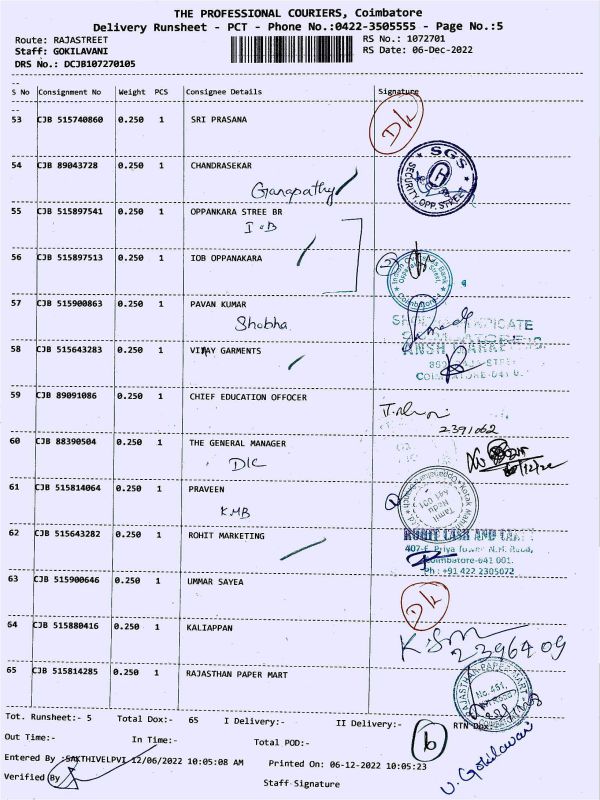 THE PROFESSIONAL COURIERS, Coimbatore
Delivery Runsheet - PCT - Phone No.:0422-3505555 - Page No.:5
Route: RAJASTREET RS No.: 1072701
Staff: GOKILAVANI RS Date: 06-Dec-2022
DRS No.: DCJB107270105
S No Consignment No Weight PCS Consignee Details Signature
53 CJB 515740860 0.250 1 SRI PRASANA D/L
54 CJB 89043728 0.250 1 CHANDRASEKAR
Ganapathy
SGS SECURITY, OPP. STREET
55 CJB 515897541 0.250 1 OPPANKARA STREE BR
I.O.B
56 CJB 515897513 0.250 1 IOB OPPANAKARA
57 CJB 515900863 0.250 1 PAVAN KUMAR
Shobha
58 CJB 515643283 0.250 1 VIJAY GARMENTS
59 CJB 89091086 0.250 1 CHIEF EDUCATION OFFOCER
2391062
60 CJB 88390504 0.250 1 THE GENERAL MANAGER
DIC
61 CJB 515814064 0.250 1 PRAVEEN
KMB
62 CJB 515643282 0.250 1 ROHIT MARKETING
ROHIT CASH AND CARRY
407-E, Priya Tower N.H. Road,
Coimbatore-641 001.
Ph : +91 422 2305072
63 CJB 515900646 0.250 1 UMMAR SAYEA D/L
64 CJB 515880416 0.250 1 KALIAPPAN
2396409
65 CJB 515814285 0.250 1 RAJASTHAN PAPER MART
RAJASTHAN PAPER MART
No.451,
Tot. Runsheet:- 5 Total Dox:- 65 I Delivery:- II Delivery:- RTN Dox:-
Out Time:- In Time:- Total POD:- 6
Entered By :SAKTHIVELPVI 12/06/2022 10:05:08 AM Printed On: 06-12-2022 10:05:23
Verified By Staff Signature
V. Gokilavani